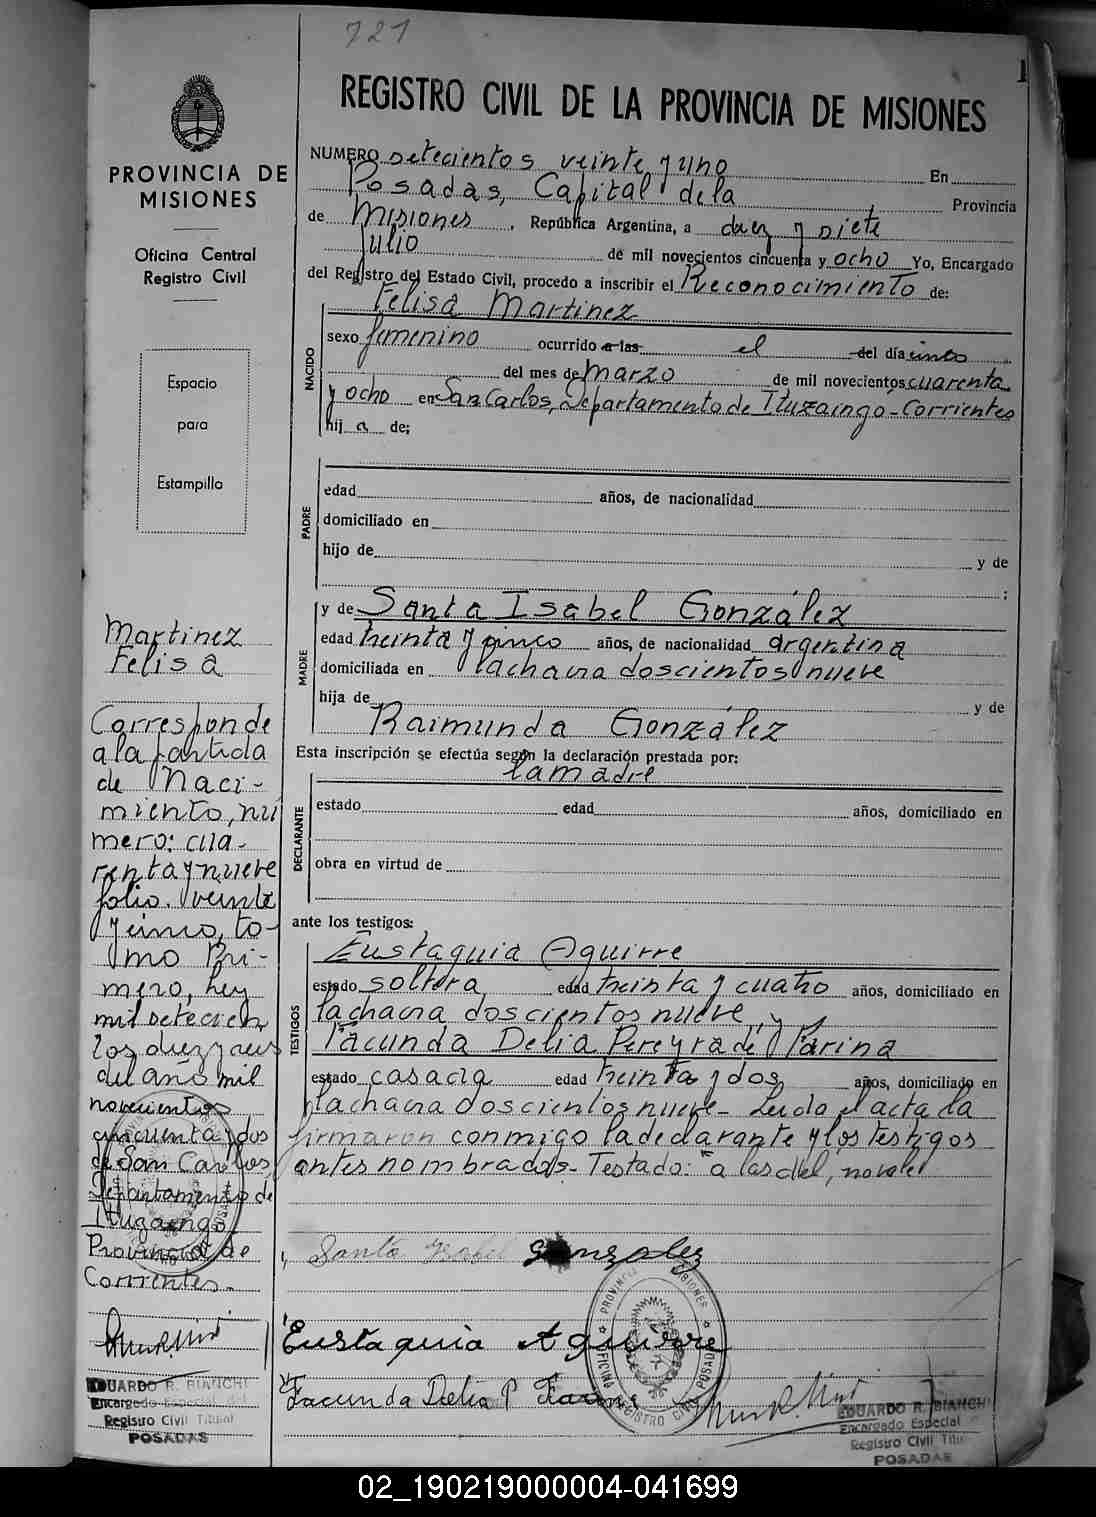 721
1
REGISTRO CIVIL DE LA PROVINCIA DE MISIONES
PROVINCIA DE
MISIONES
Oficina Central
Registro Civil
Espacio
para
Estampilla
NUMERO Setecientos veinte y uno En
Posadas, Capital de la Provincia
de Misiones, República Argentina, a diez y siete
Julio de mil novecientos cincuenta y ocho Yo, Encargado
del Registro del Estado Civil, procedo a inscribir el Reconocimiento de:
Felisa Martinez
NACIDO
sexo femenino ocurrido a las el del día cinco
del mes de marzo de mil novecientos cuarenta
y ocho en San Carlos, Departamento de Ituzaingó-Corrientes
hij a de;
PADRE
edad años, de nacionalidad
domiciliado en
hijo de y de
;
MADRE
y de Santa Isabel González
edad treinta y cinco años, de nacionalidad argentina
domiciliada en la chacra doscientos nueve
hija de y de
Raimunda González
Esta inscripción se efectúa según la declaración prestada por:
la madre
DECLARANTE
estado edad años, domiciliado en
obra en virtud de
ante los testigos:
TESTIGOS
Eustaquia Aguirre
estado soltera edad treinta y cuatro años, domiciliado en
la chacra doscientos nueve y
Facunda Delia Pereyra de Farina
estado casada edad treinta y dos años, domiciliado en
la chacra doscientos nueve- Leida el acta la
firmaron conmigo la declarante y los testigos
antes nombrados- Testado: "a las del, no vale
Santa Isabel Gonzalez
Eustaquia Aguirre
Facunda Delia P Farina
Martinez
Felisa
Corresponde
a la partida
de Naci-
miento, nú
mero: cua-
renta y nueve
folio. veinte
y cinco, to-
mo Pri-
mero, ley
mil setecien
tos diez y seis
del año mil
novecientos
cincuenta y dos
de San Carlos
Departamento de
Ituzaingó
Provincia de
Corrientes-
EDUARDO R. BIANCHI
Encargado Especial del
Registro Civil Titular
POSADAS
PROVINCIA MISIONES
OFICINA REGISTRO CIVIL POSADAS
EDUARDO R. BIANCHI
Encargado Especial
Registro Civil Titu
POSADAS
02_190219000004-041699